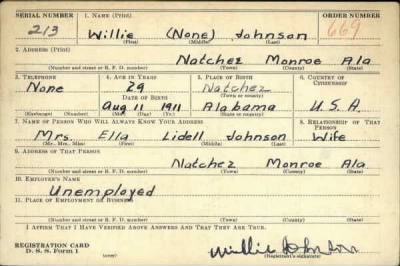 SERIAL NUMBER 1. NAME (Print) ORDER NUMBER
213 Willie (None) Johnson 669
(First) (Middle) (Last)
2. ADDRESS (Print)
Natchez Monroe Ala
(Number and street or R. F. D. number) (Town) (County) (State)
3. TELEPHONE 4. AGE IN YEARS 5. PLACE OF BIRTH 6. COUNTRY OF CITIZENSHIP
None 29 Natchez
DATE OF BIRTH (Town or county)
Aug 11 1911 Alabama U.S.A.
(Exchange) (Number) (Mo.) (Day) (Yr.) (State or country)
7. NAME OF PERSON WHO WILL ALWAYS KNOW YOUR ADDRESS 8. RELATIONSHIP OF THAT PERSON
Mrs. Ella Lidell Johnson Wife
(Mr., Mrs., Miss) (First) (Middle) (Last)
9. ADDRESS OF THAT PERSON
Natchez Monroe Ala
(Number and street or R. F. D. number) (Town) (County) (State)
10. EMPLOYER'S NAME
Unemployed
11. PLACE OF EMPLOYMENT OR BUSINESS
(Number and street or R. F. D. number) (Town) (County) (State)
I AFFIRM THAT I HAVE VERIFIED ABOVE ANSWERS AND THAT THEY ARE TRUE.
REGISTRATION CARD
D. S. S. Form 1 (over) Willie Johnson
(Registrant's signature)